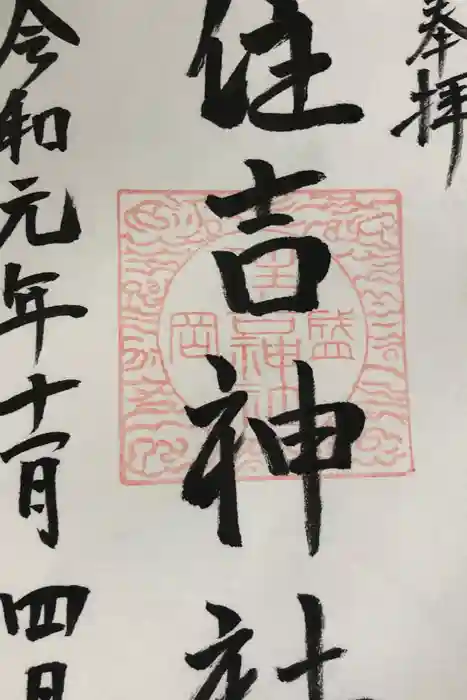 奉拝
住吉神社
盛岡
令和元年十一月四日